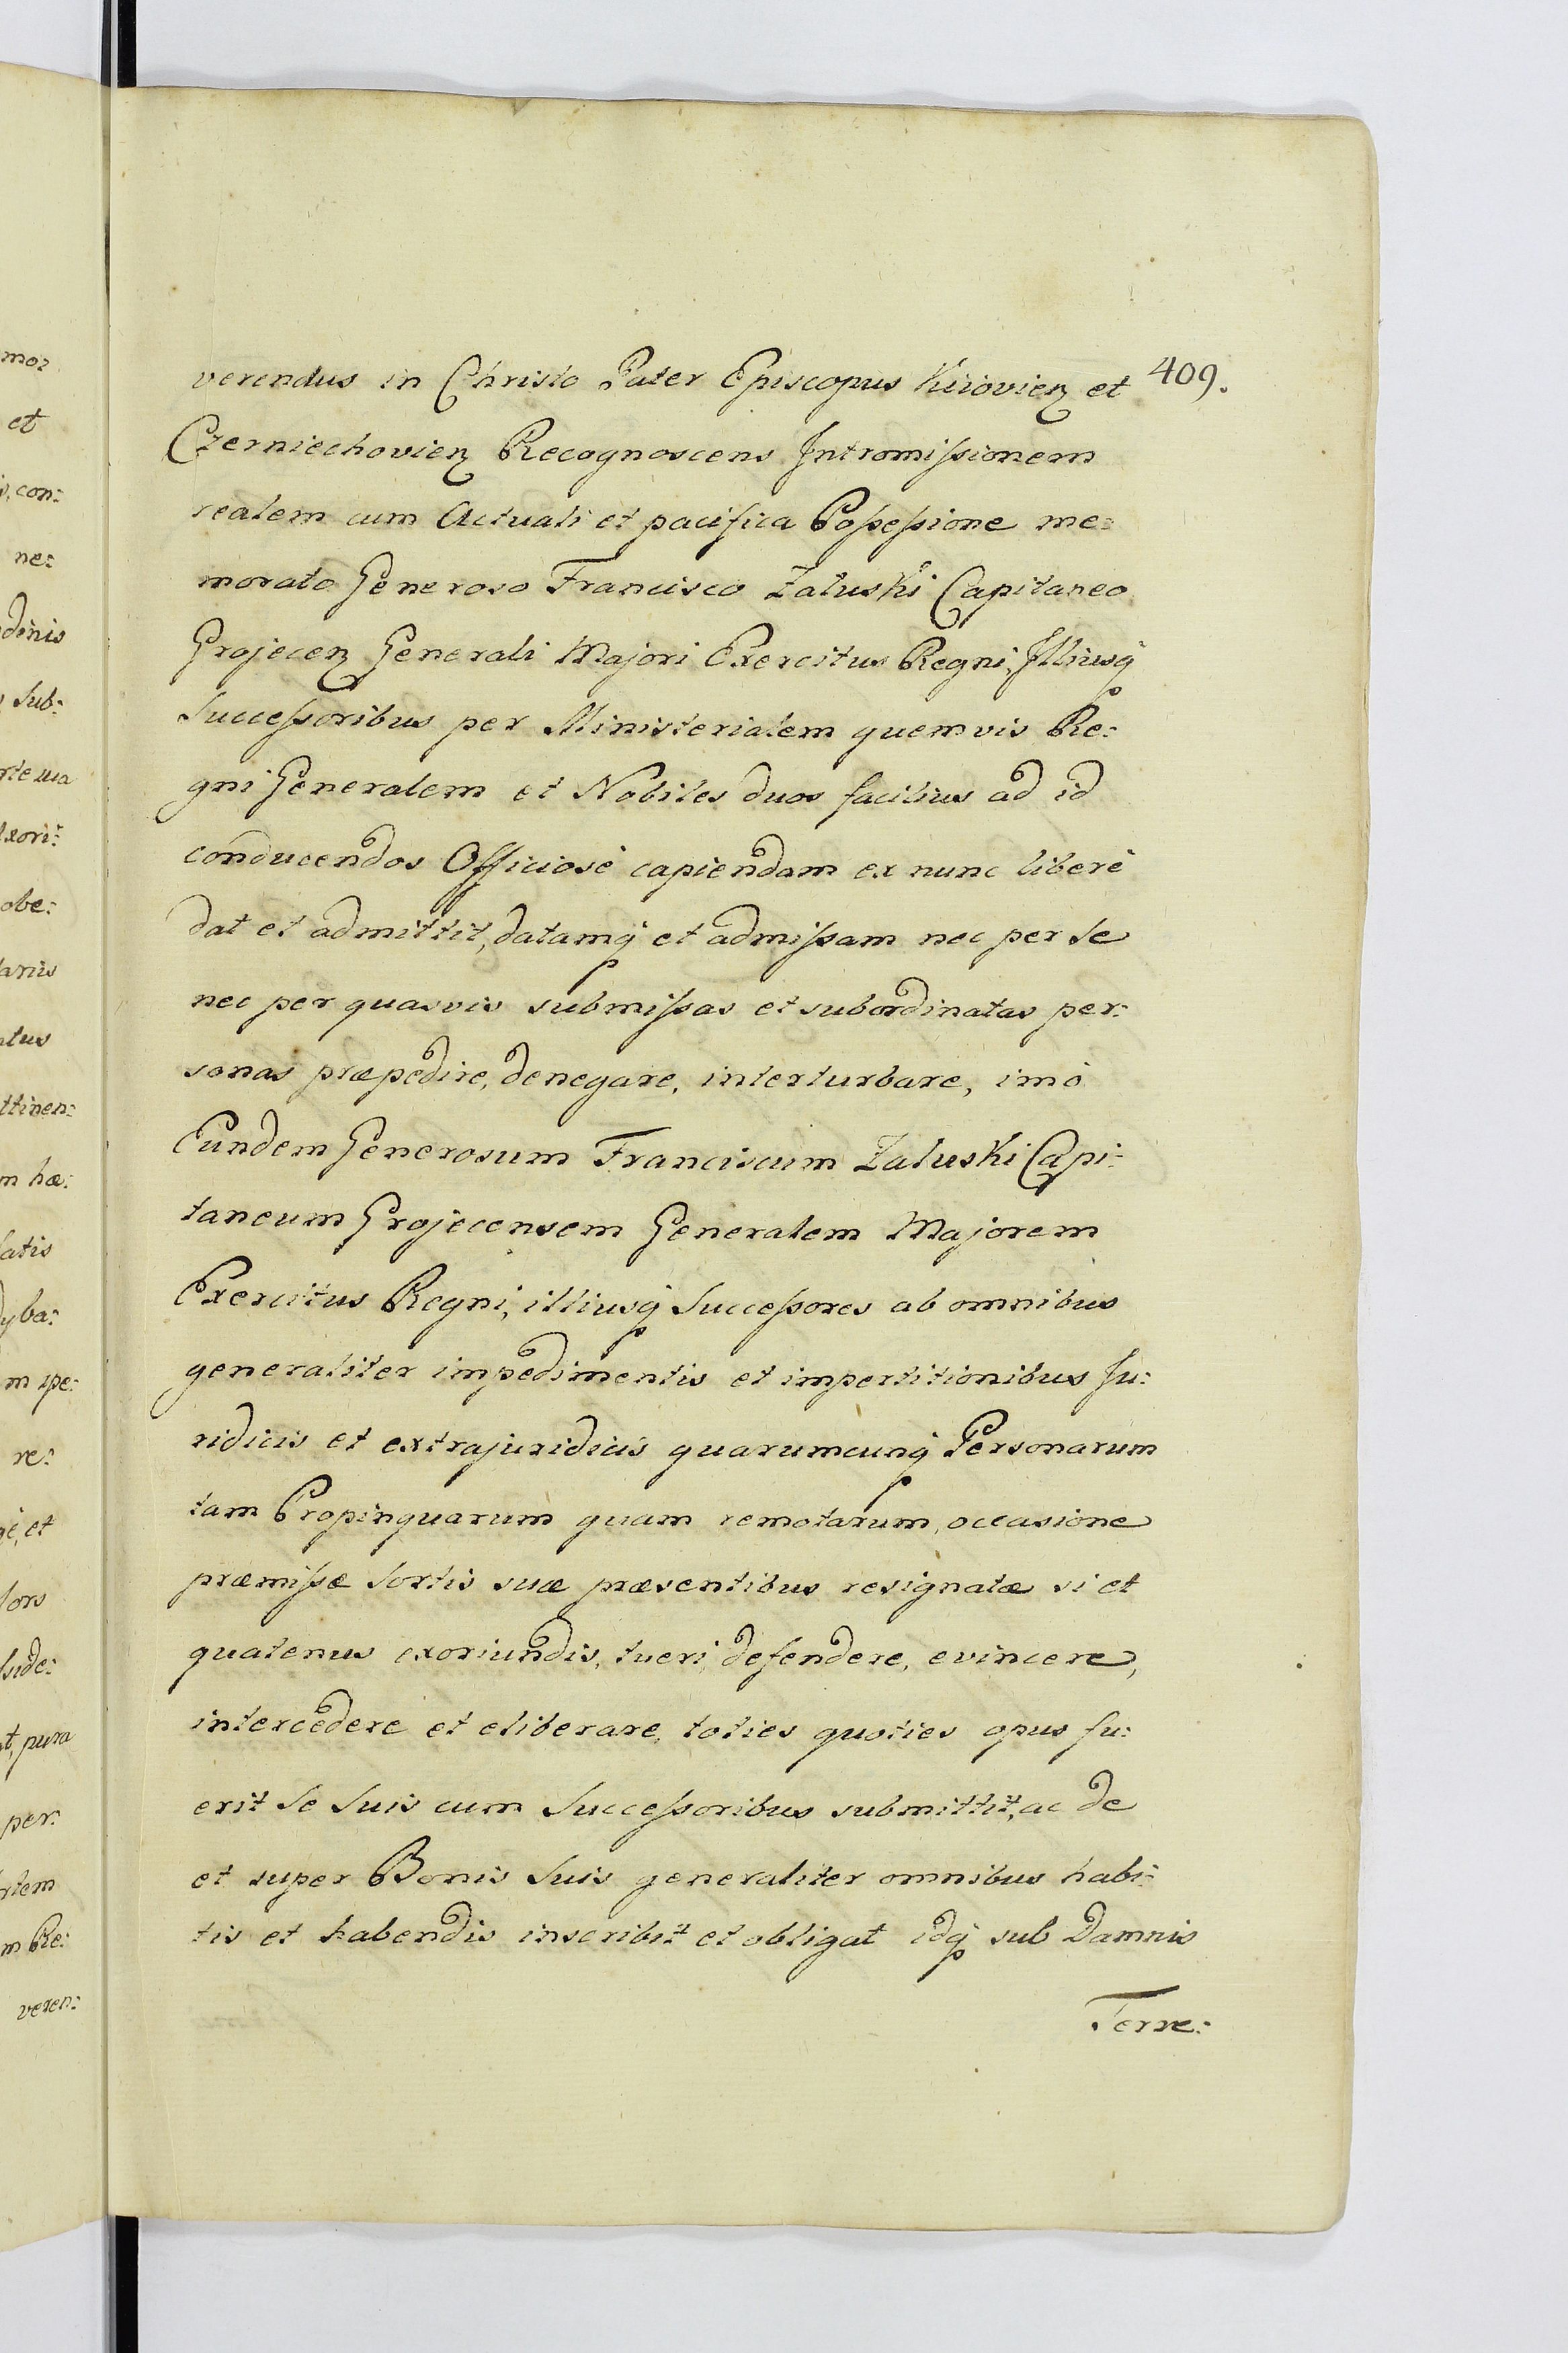 409.
verendus in Christo Pater Episcopus Kiiovień et
Czerniechovień Recognoscens Intromißionem
realem cum Actuali et pacifica Poßeßione me:
morato Generoso Francisco Zaluski Capitaneo
Grojeceń Generali Majori Exercitus Regni, Illiusq́
Succeßoribus per Ministerialem quemvis Re:
gni Generalem et Nobiles duos facilius ad id
conducendos Officiosè capiendam ex nunc liberè
dat et admittit, datamq́ et admißam nec per se
nec per quasvis submißas et subordinatas per:
sonas præpedire, denegare, interturbare, imò
Eundem Generosum Franciscum Zaluski Capi:
taneum Grojecensem Generalem Majorem
Exercitus Regni, illiusq́ Succeßores ab omnibus
generaliter impedimentis et impertitionibus Ju:
ridicis et extrajuridicis quarumcunq́ Personarum
tam Propinquarum quam remotarum, occasione
præmißæ Sortis suæ præsentibus resignatæ si et
quatenus exoriundis, tueri, defendere, evincere,
intercedere et eliberare, toties quoties opus fu:
erit Se Suis cum Succeßoribus submittit, ac de
et super Bonis Suis generaliter omnibus habi:
tis et habendis inscribit et obligat idq́ sub Damnis
Terre:
mor
et
con:
ne:
Sub:
obe:
ttinen:
m hæ:
latis
re:
et
pura
per:
m Re:
veren: